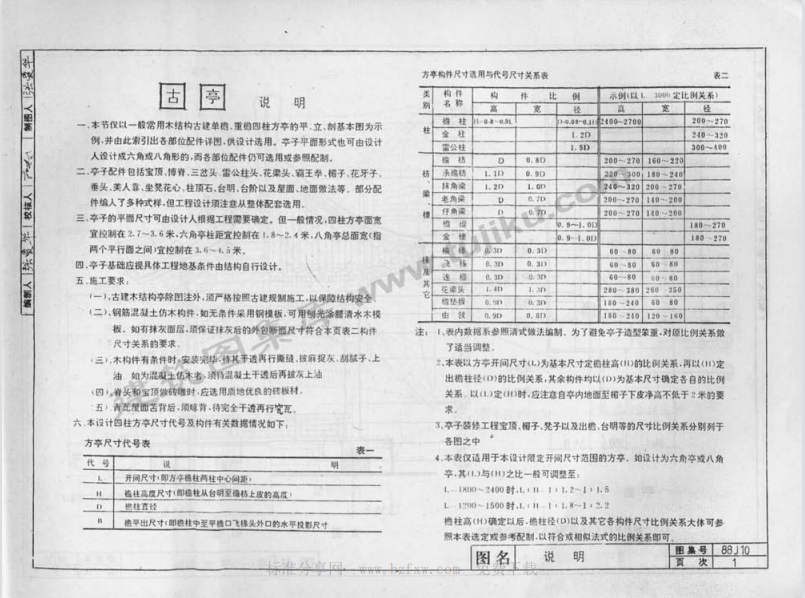 古亭 说明
一、本节仅以一般常用木结构古建单檐、重檐四柱方亭的平、立、剖基本图为示
例，并由此索引出各部位配件详图，供设计选用。亭子平面形式也可由设计
人设计成六角或八角形的，而各部位配件仍可选用或参照配制。
二、亭子配件包括宝顶、博脊、三岔头、雷公柱头、花梁头、霸王拳、楣子、花牙子、
垂头、美人靠、坐凳花心、柱顶石、台明、台阶以及屋面、地面做法等。部分配
件编入了多种式样，但工程设计须注意从整体配套选用。
三、亭子的平面尺寸可由设计人根据工程需要确定。但一般情况，四柱方亭面宽
宜控制在2.7~3.6米，六角亭柱距宜控制在1.8~2.4米，八角亭总面宽（指
两个平行面之间）宜控制在3.6~4.5米。
四、亭子基础应视具体工程地基条件由结构自行设计。
五、施工要求：
（一）、古建木结构亭除图注外，须严格按照古建规制施工，以保障结构安全
（二）、钢筋混凝土仿木构件，如无条件采用钢模板，可用刨光涂腊清水木模
板，如有抹灰面层，须保证抹灰后的外包断面尺寸符合本页表二构件
尺寸关系的要求。
（三）、木构件有条件时，安装完毕，待其干透再行撕缝、披麻捉灰、刮腻子、上
油 如为混凝土仿木者，须待混凝土干透后再披灰上油
（四）、脊头和宝顶做砖雕时，应选用质地优良的砖板材
瓦屋面苫背后，须晾背，待完全干透再行宽瓦。
六、本设计四柱方亭尺寸代号及构件有关数据情况如下：
方亭尺寸代号表 表一
代号 说明
L 开间尺寸（即方亭檐柱两柱中心间距）
H 檐柱高度尺寸（即檐柱从台明至檐枋上皮的高度）
D 檐柱直径
B 檐平出尺寸（即檐柱中至平檐口飞椽头外口的水平投影尺寸
方亭构件尺寸选用与代号尺寸关系表 表二
类别 构件名称 构件比例 示例（以L 3000定比例关系）
高 宽 径 高 宽 径
柱 檐柱 2400~2700 200~270
金柱 1.2D 240~320
雷公柱 1.5D 300~400
枋梁檩 檐枋 D 0.8D 200~270 160~220
承檐枋 1.1D 0.9D 220~300 180~240
抹角梁 1.2D 1.0D 240~320 200~270
老角梁 D 0.7D 200~270 140~200
仔角梁 D 0.7D 200~270 140~200
檐檩 0.9~1.0D 180~270
金檩 0.9~1.0D 180~270
椽及其它 檐椽 0.3D 0.3D 60~80 60~80
飞椽 0.3D 0.3D 60~80 60~80
连檐 0.3D 0.3D 60~80 60~80
花梁头 1.4D 1.3D 280~380 260~350
檐垫板 0.9D 0.3D 180~240 60~80
由戗 0.9D 0.6D 180~240 120~160
注：1、表内数据系参照清式做法编制。为了避免亭子造型笨重，对原比例关系做
了适当调整。
2、本表以方亭开间尺寸（L）为基本尺寸定檐柱高（H）的比例关系，再以（H）定
出檐柱径（D）的比例关系，其余构件均以（D）为基本尺寸确定各自的比例
关系。以（L）定（H）时，应注意自亭内地面至楣子下皮净高不低于2米的要
求。
3、亭子装修工程宝顶、楣子、凳子以及出檐、台明等的尺寸比例关系分别列于
各图之中
4、本表仅适用于本设计限定开间尺寸范围的方亭。如设计为六角亭或八角
亭，其（L）与（H）之比一般可调整至：
L=1800~2400时，L：H=1：1.2~1：1.5
L=1200~1500时，L：H=1：1.8~1：2.2
檐柱高（H）确定以后，檐柱径（D）以及其它各构件尺寸比例关系大体可参
照本表选定或参考配制，以符合或相似法式的比例关系即可。
图名 说明 图集号 88J10
页次 1
制图人
校核人
www.tujiku.com
标准分享网 www.bzfxw.com 免费下载